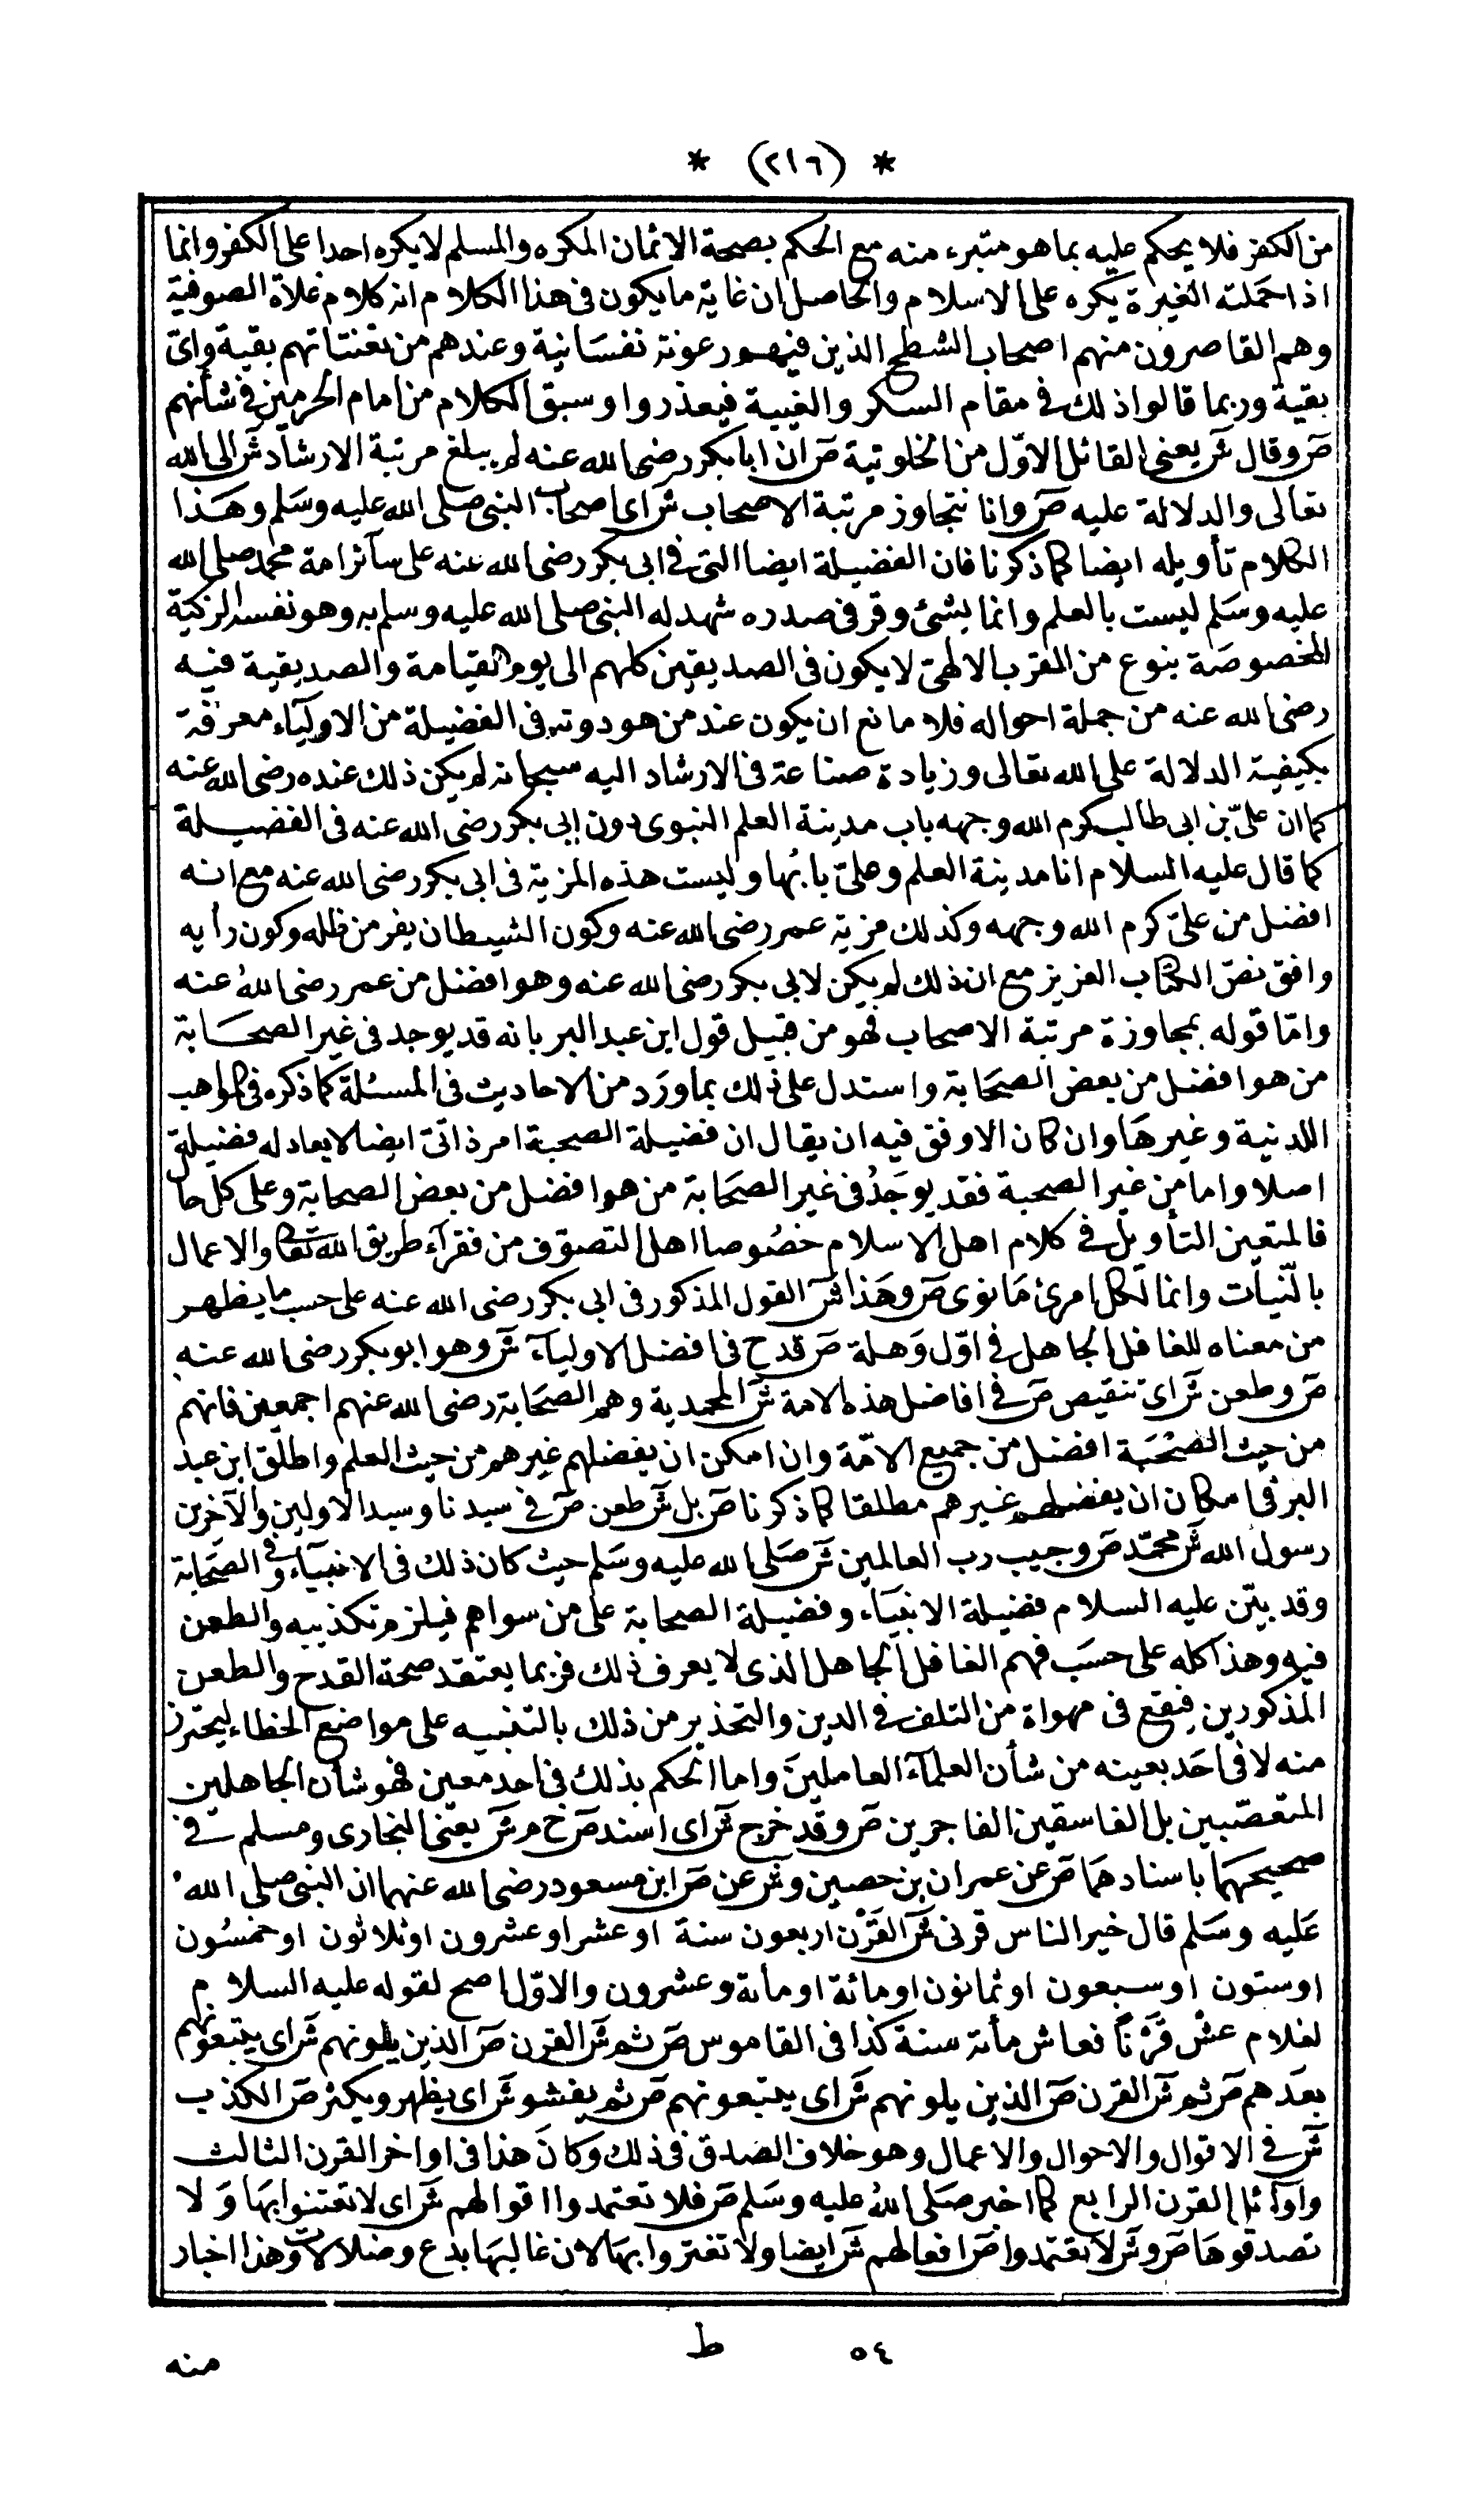 * (٢١٦) *
من الكفر فلا يحكم عليه بما هو متبرء منه مع الحكم بصحة الايمان المكره والمسلم لا يكره احدا على الكفر وانما
اذا حملته الغيرة يكره على الاسلام والحاصل ان غاية ما يكون فى هذا الكلام انه كلام غلاة الصوفية
وهم القاصرون منهم اصحاب الشطح الذين فيهم رعونة نفسانية وعندهم من بقية واى
بقية وربما قالوا ذلك فى مقام السكر والغيبة فيعذروا وسبق الكلام من امام الحرمين فى شأنهم
ص وقال ش يعنى القائل الاوّل من الخلوتية ص ان ابا بكر رضى الله عنه لم يبلغ مرتبة الارشاد ش الى الله
تعالى والدلالة عليه ص وانا نتجاوز مرتبة الاصحاب ش اى اصحاب النبى صلى الله عليه وسلم وهذا
الكلام تأويله ايضا كما ذكرنا فان الفضيلة ايضا التى فى ابى بكر رضى الله عنه على سآئر امة محمد صلى الله
عليه وسلم ليست بالعلم وانما بشئ وقر فى صدره شهد له النبى صلى الله عليه وسلم به وهو نفسه الزكية
المخصوصة بنوع من القرب الالهىّ لا يكون فى الصديقين كلهم الى يوم القيامة والصديقية فيه
رضى الله عنه من جملة احواله فلا مانع ان يكون عند من هو دونه فى الفضيلة من الاوليآء معرفة
بكيفية الدلالة على الله تعالى وزيادة صناعة فى الارشاد اليه سبحانه لم يكن ذلك عنده رضى الله عنه
كما ان علىّ بن ابى طالب كرم الله وجهه باب مدينة العلم النبوى دون ابى بكر رضى الله عنه فى الفضيلة
كما قال عليه السلام انا مدينة العلم وعلىّ بابُها وليست هذه المزية فى ابى بكر رضى الله عنه مع انه
افضل من علىّ كرم الله وجهه وكذلك مزية عمر رضى الله عنه وكون الشيطان يفر من ظله وكون رأيه
وافق نصّ الكتاب العزيز مع ان ذلك لم يكن لابى بكر رضى الله عنه وهو افضل من عمر رضى اللهُ عنه
وامّا قوله بمجاوزة مرتبة الاصحاب فهو من قبيل قول ابن عبد البر بانه قد يوجد فى غير الصحابة
من هو افضل من بعض الصحابة واستدل على ذلك بما ورد من الاحاديث فى المسئلة كما ذكره فى المواهب
اللدنية وغيرها وان كان الاوفق فيه ان يقال ان فضيلة الصحبة امر ذاتىّ ايضا لا يعادله فضيلة
اصلا واما من غير الصحبة فقد يوجدُ فى غير الصحابة من هو افضل من بعض الصحابة وعلى كل حال
فالمتعين التأويل فى كلام اهل الاسلام خصُوصا اهل التصوّف من فقرآء طريق الله تعالى والاعمال
بالنيات وانما لكل امرئ ما نوى ص وهذا ش القول المذكور فى ابى بكر رضى الله عنه على حسب ما يظهر
من معناه للغافل الجاهل فى اوّل وهلة ص قدح فى افضل الاوليآء ش وهو ابو بكر رضى الله عنه
ص وطعن ش اى تنقيص ص فى افاضل هذه الامة ش المحمدية وهم الصحابة رضى الله عنهم اجمعين فانهم
من حيث الصحبة افضل من جميع الامّة وان امكن ان يفضلهم غيرهم من حيث العلم واطلق ابن عبد
البر فى امكان ان يفضلهم غيرهم مطلقا كما ذكرنا ص بل ش طعن ص فى سيدنا وسيد الاولين والآخرين
رسول الله ش محمّد ص وحبيب رب العالمين ش صلى الله عليه وسلم حيث كان ذلك فى الانبيآء وفى الصحابة
وقد بيّن عليه السلام فضيلة الانبياء وفضيلة الصحابة على من سواهم فيلزم تكذيبه والطعن
فيه وهذا كله على حسَب فهم الغافل الجاهل الذى لا يعرف ذلك فربما يعتقد صحة القدح والطعن
المذكورين فيقع فى مهواة من التلف فى الدين والتحذير من ذلك بالتنبيه على مواضع الخطاء ليحترز
منه لا فى احد بعينه من شأن العلمآء العاملين واما الحكم بذلك فى احد معين فهو شأن الجاهلين
المتعصّبين بل الفاسقين الفاجرين ص وقد خرج ش اى اسند ص خ م ش يعنى البخارى ومسلم فى
صحيحهما باسنادهما ص عن عمران بن حصين و ش عن ص ابن مسعود رضى الله عنهما ان النبى صلى اللهُ
عليه وسلم قال خير الناس قرنى ش القَرْن اربعون سنة او عشر او عشرون او ثلاثون او خمسُون
او ستون او سبعون او ثمانون او مائة او مأة وعشرون والاوّل اصح لقوله عليه السلام
لغلام عش قَرْناً فعاش مأة سنة كذا فى القاموس ص ثم ش القرن ص الذين يلونهم ش اى يتبعونهم
بعدهم ص ثم ش القرن ص الذين يلونهم ش اى يتبعونهم ص ثم يفشو ش اى يظهر ويكثر ص الكذب
ش فى الاقوال والاحوال والاعمال وهو خلاف الصدق فى ذلك وكان هذا فى اواخر القرن الثالث
واوآئل القرن الرابع كما اخبر صلى اللهُ عليه وسلم ص فلا تعتمدوا اقوالهم ش اى لا تعتنوا بها ولا
تصدقوها ص و ش لا تعتمدوا ص افعالهم ش ايضا ولا تغتروا بها لان غالبها بدع وضلالات وهذا اخبار
٥٤ ط منه